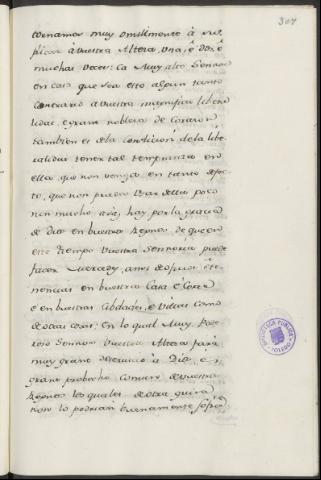 307
tornamos muy omildmente à su-
plicar à vuestra Alteza, una, è dos, è
muchas veces: Ca Muy alto Señor
en caso que sea esto algun tanto
contrario a vuestra magnifica liber-
lidad, e grand nobleza de Corazon
tambien es de la condicion de la libe-
ralidad tener tal temprança en
ella que non venga en tanto defec-
to, que non pueda usar della poco
nin mucho: è hay, por la gracia
de Dios en vuestros Regnos de que en
este tiempo Vuestra Señoria puede
facer Mercedes, ante de oficios è te-
nencias en vuestra Casa è Corte
e en vuestras Cibdades, e Villas como
de otras cosas: En lo qual Muy Pode-
roso Señor Vuestra Alteza fará
muy grand servicio à Dios, e
grand probecho comun de vuestros
Regnos los quales de otra guisa
non lo podrian buenamente sofrir
BIBLIOTECA PUBLICA
TOLEDO